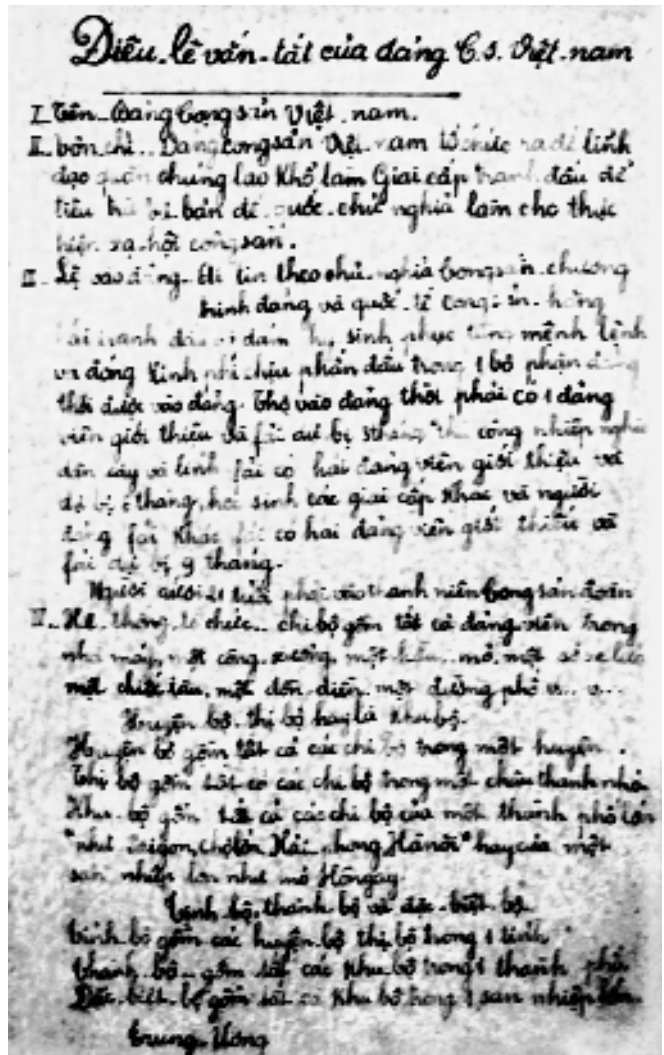 Điều lệ vắn-tắt của đảng C.S. Việt-nam
I. Tên - Đảng Cộng sản Việt-nam.
II. Tôn chỉ - Đảng Cộng sản Việt-nam tổ chức ra để lĩnh
đạo quần chúng lao khổ làm Giai cấp tranh đấu để
tiêu trừ tư bản đế quốc chủ nghĩa làm cho thực
hiện xã hội cộng sản.
III. Lệ vào đảng - Ai tin theo chủ nghĩa cộng sản, chương
trình đảng và quốc tế cộng sản hăng
hái tranh đấu và dám hy sinh phục tùng mệnh lệnh
và đóng kinh phí chịu phấn đấu trong 1 bộ phận đảng
thời được vào đảng. Thợ vào đảng thời phải có 1 đảng
viên giới thiệu và fải dự bị 3 tháng thủ công nhiệp nghèo
dân cày và lính fải có hai đảng viên giới thiệu và
dự bị 6 tháng, học sinh các giai cấp khác và người
đảng fái khác fải có hai đảng viên giới thiệu và
fải dự bị 9 tháng.
Người dưới 21 tuổi phải vào thanh niên cộng sản đoàn
IV. Hệ thống tổ chức - chi bộ gồm tất cả đảng viên trong
nhà máy, một công xưởng, một hầm mỏ, một sở xe lửa
một chiếc tàu, một đồn điền, một đường phố v.. v...
Huyện bộ, thị bộ hay là khu bộ.
Huyện bộ gồm tất cả các chi bộ trong một huyện.
Thị bộ gồm tất cả các chi bộ trong một châu thành nhỏ.
Khu bộ gồm tất cả các chi bộ của một thành phố lớn
"như Saigon, Chợ lớn, Hải phong, Hànội" hay của một
sản nhiệp lớn như mỏ Hòngay.
Tỉnh bộ, thành bộ và đặc-biệt bộ.
tỉnh bộ gồm các huyện bộ thị bộ trong 1 tỉnh
thành bộ gồm tất các khu bộ trong 1 thành phố
Đặc biệt bộ gồm tất cả khu bộ trong 1 sản nhiệp lớn.
Trung-Ương